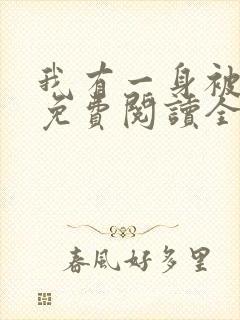 我有一身被
免費閱讀全
春風好多里